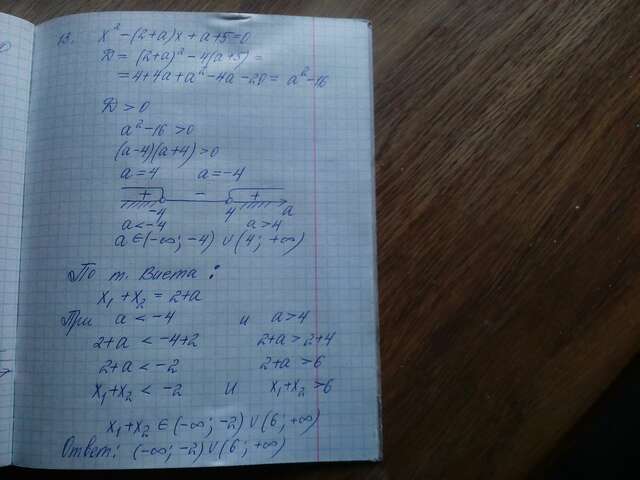 13. x² - (2+a)x + a + 5 = 0
D = (2+a)² - 4(a+5) =
= 4 + 4a + a² - 4a - 20 = a² - 16
D > 0
a² - 16 > 0
(a-4)(a+4) > 0
a = 4 a = -4
+ - +
-4 4 a
a < -4 a > 4
a ∈ (-∞; -4) ∪ (4; +∞)
По т. Виета:
x₁ + x₂ = 2+a
При a < -4 и a > 4
2+a < -4+2 2+a > 2+4
2+a < -2 2+a > 6
x₁+x₂ < -2 и x₁+x₂ > 6
x₁+x₂ ∈ (-∞; -2) ∪ (6; +∞)
Ответ: (-∞; -2) ∪ (6; +∞)